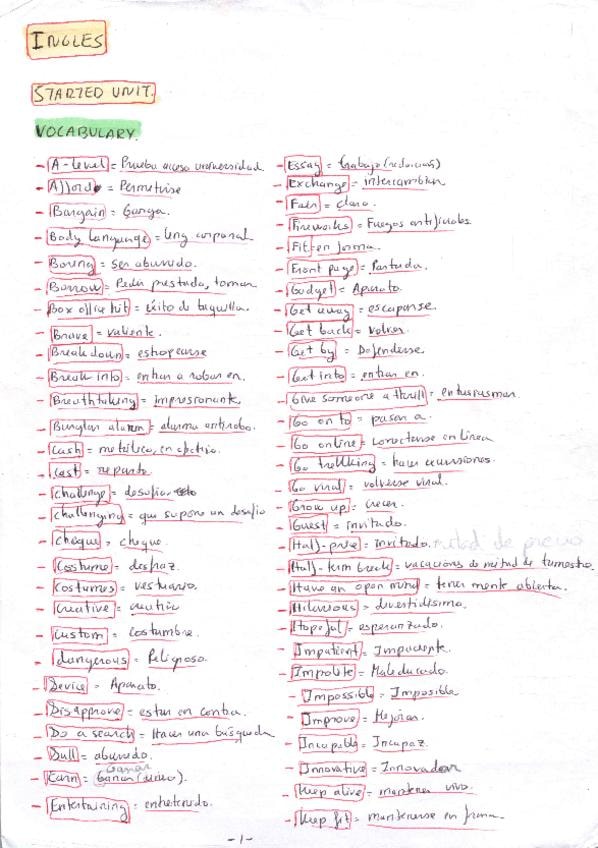 INGLES
STARTED UNIT.
VOCABULARY.
- A-level = Prueba acceso universidad
- Afford = Permitirse
- Bargain = Ganga.
- Body language = leng corporal
- Boring = ser aburrido.
- Borrow = Pedir prestado, tomar
- Box office hit = éxito de taquilla.
- Brave = valiente.
- Break down = estropearse
- Break into = entrar a robar en.
- Breathtaking = impresionante
- Burglar alarm = alarma antirrobo.
- Cash = metálico, en efectivo.
- Cast = reparto.
- Challenge = desafio, reto
- Challenging = que supone un desafio
- Cheque = cheque.
- Costume = disfraz.
- Costumes = vestuario.
- Creative = creativo
- Custom = costumbre.
- dangerous = Peligroso.
- Device = Aparato.
- Disapprove = estar en contra.
- Do a search = Hacer una búsqueda
- Dull = aburrido.
- Earn = ganar (dinero).
- Entertaining = entretenido.
- Essay = trabajo (redaccion)
- Exchange = intercambiar
- Fair = claro.
- Fireworks = Fuegos artificiales
- Fit = en forma.
- Front page = Portada.
- Gadget = Aparato.
- Get away = escaparse.
- Get back = volver.
- Get by = Defenderse.
- Get into = entrar en.
- Give someone a thrill = entusiasmar.
- Go on to = pasar a.
- Go online = conectarse en linea
- Go trekking = hacer excursiones.
- Go viral = volverse viral.
- Grow up = crecer.
- Guest = invitado.
- Half-price = invitado. mitad de precio
- Half-term break = vacaciones de mitad de trimestre.
- Have an open mind = tener mente abierta.
- Hilarious = divertidisimo.
- Hopeful = esperanzado.
- Impatient = Impaciente.
- Impolite = Maleducado.
- Impossible = Imposible
- Improve = Mejorar.
- Incapable = Incapaz.
- Innovative = Innovador
- Keep alive = mantener vivo.
- Keep fit = mantenerse en forma.
-1-